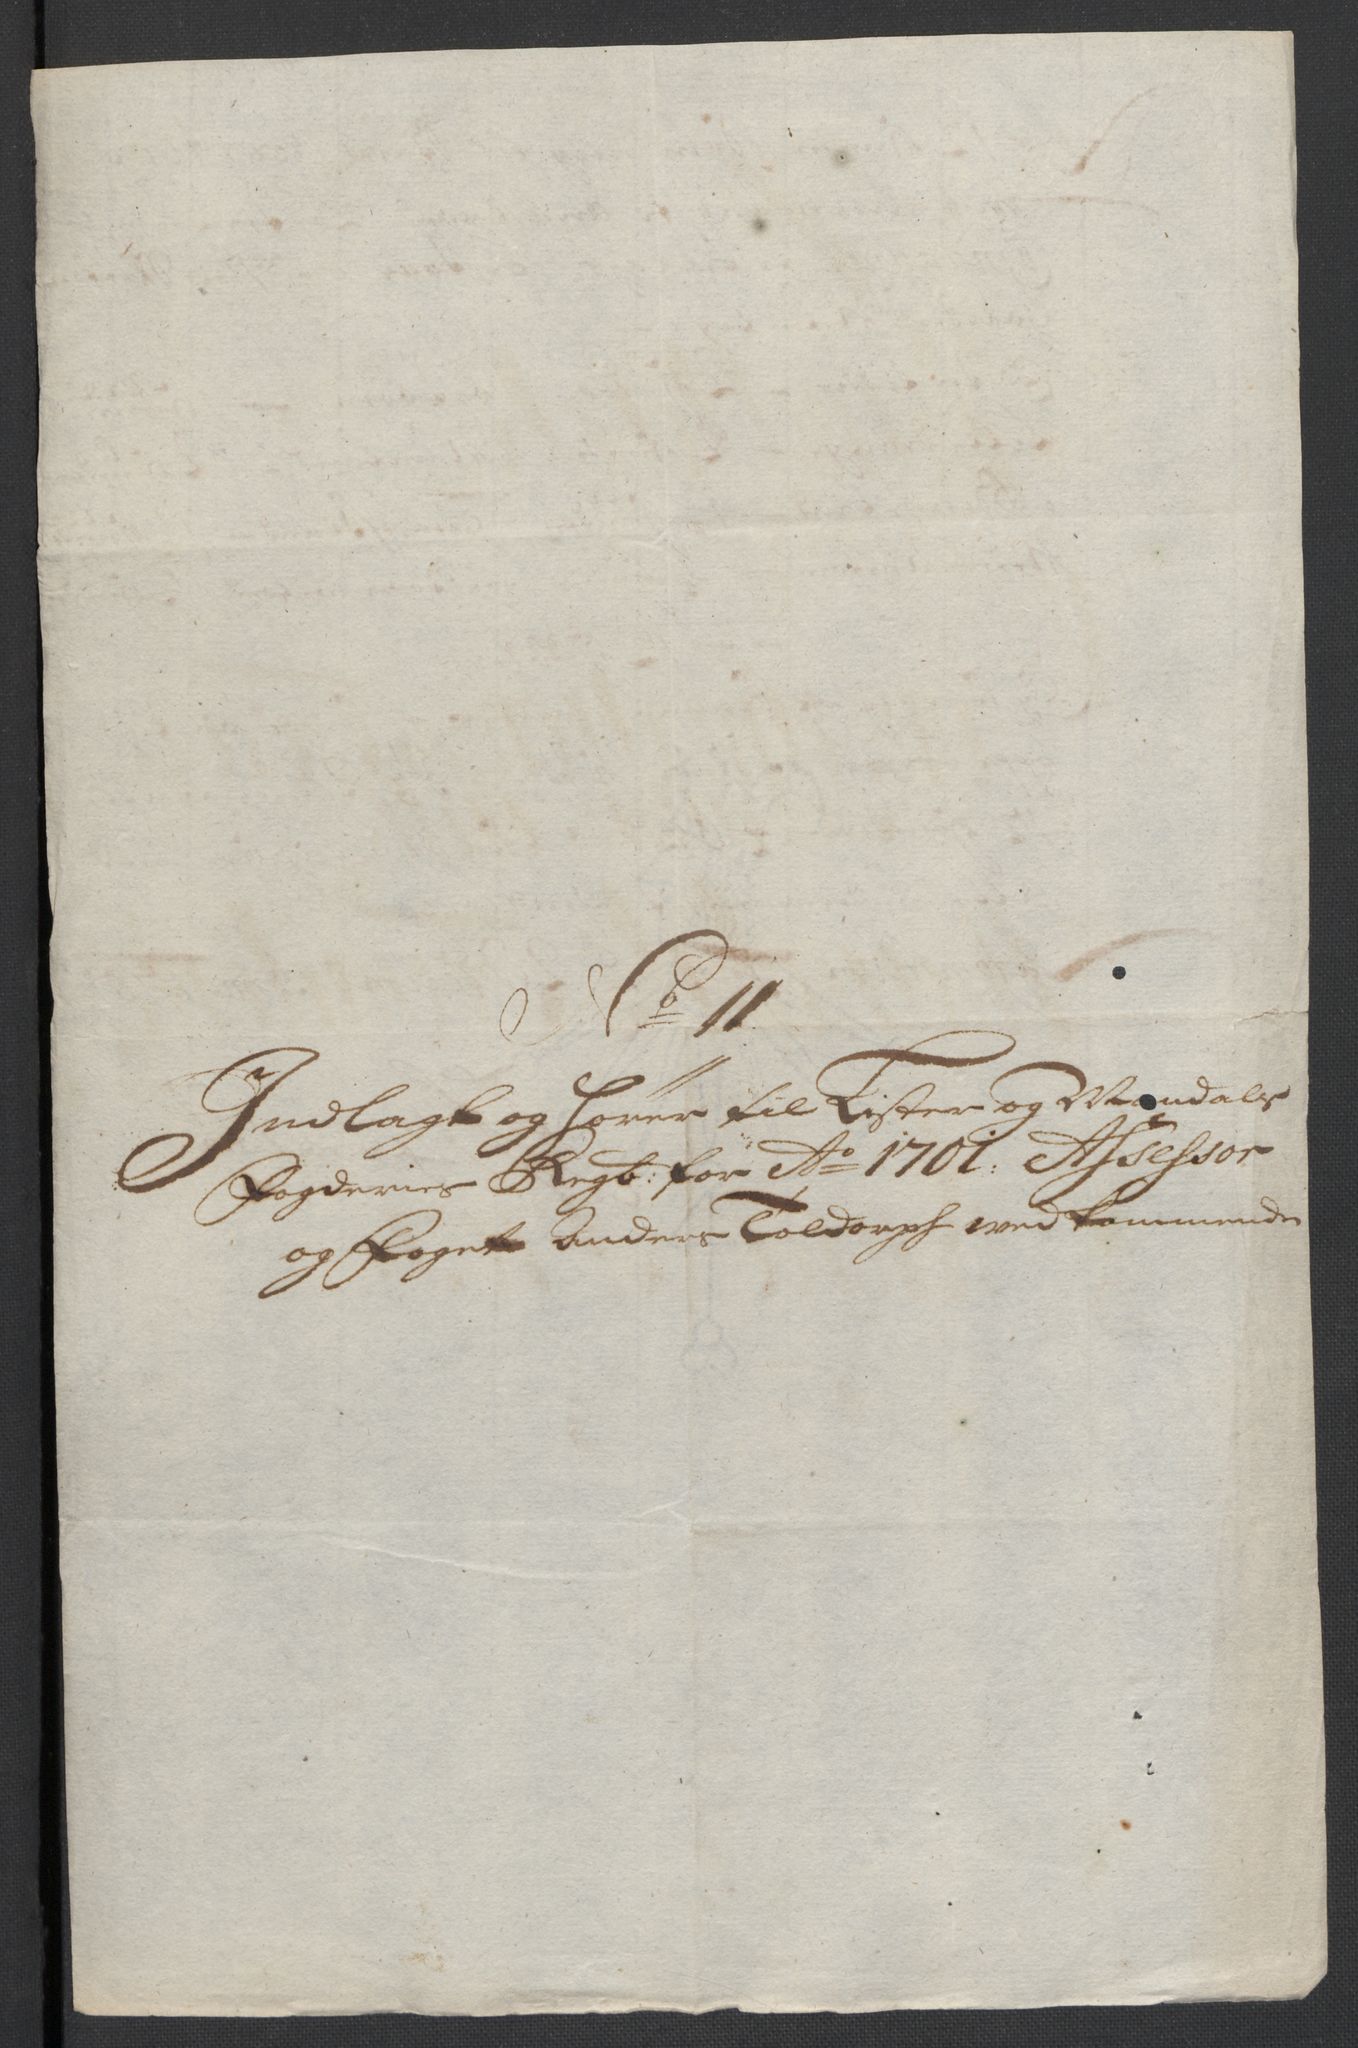 No 11
Indlagt og hörer til Lister og Mandals
Fogderies Regb: for Ao 1701. Assessor
og Foget Anders Toldorph vedkommende